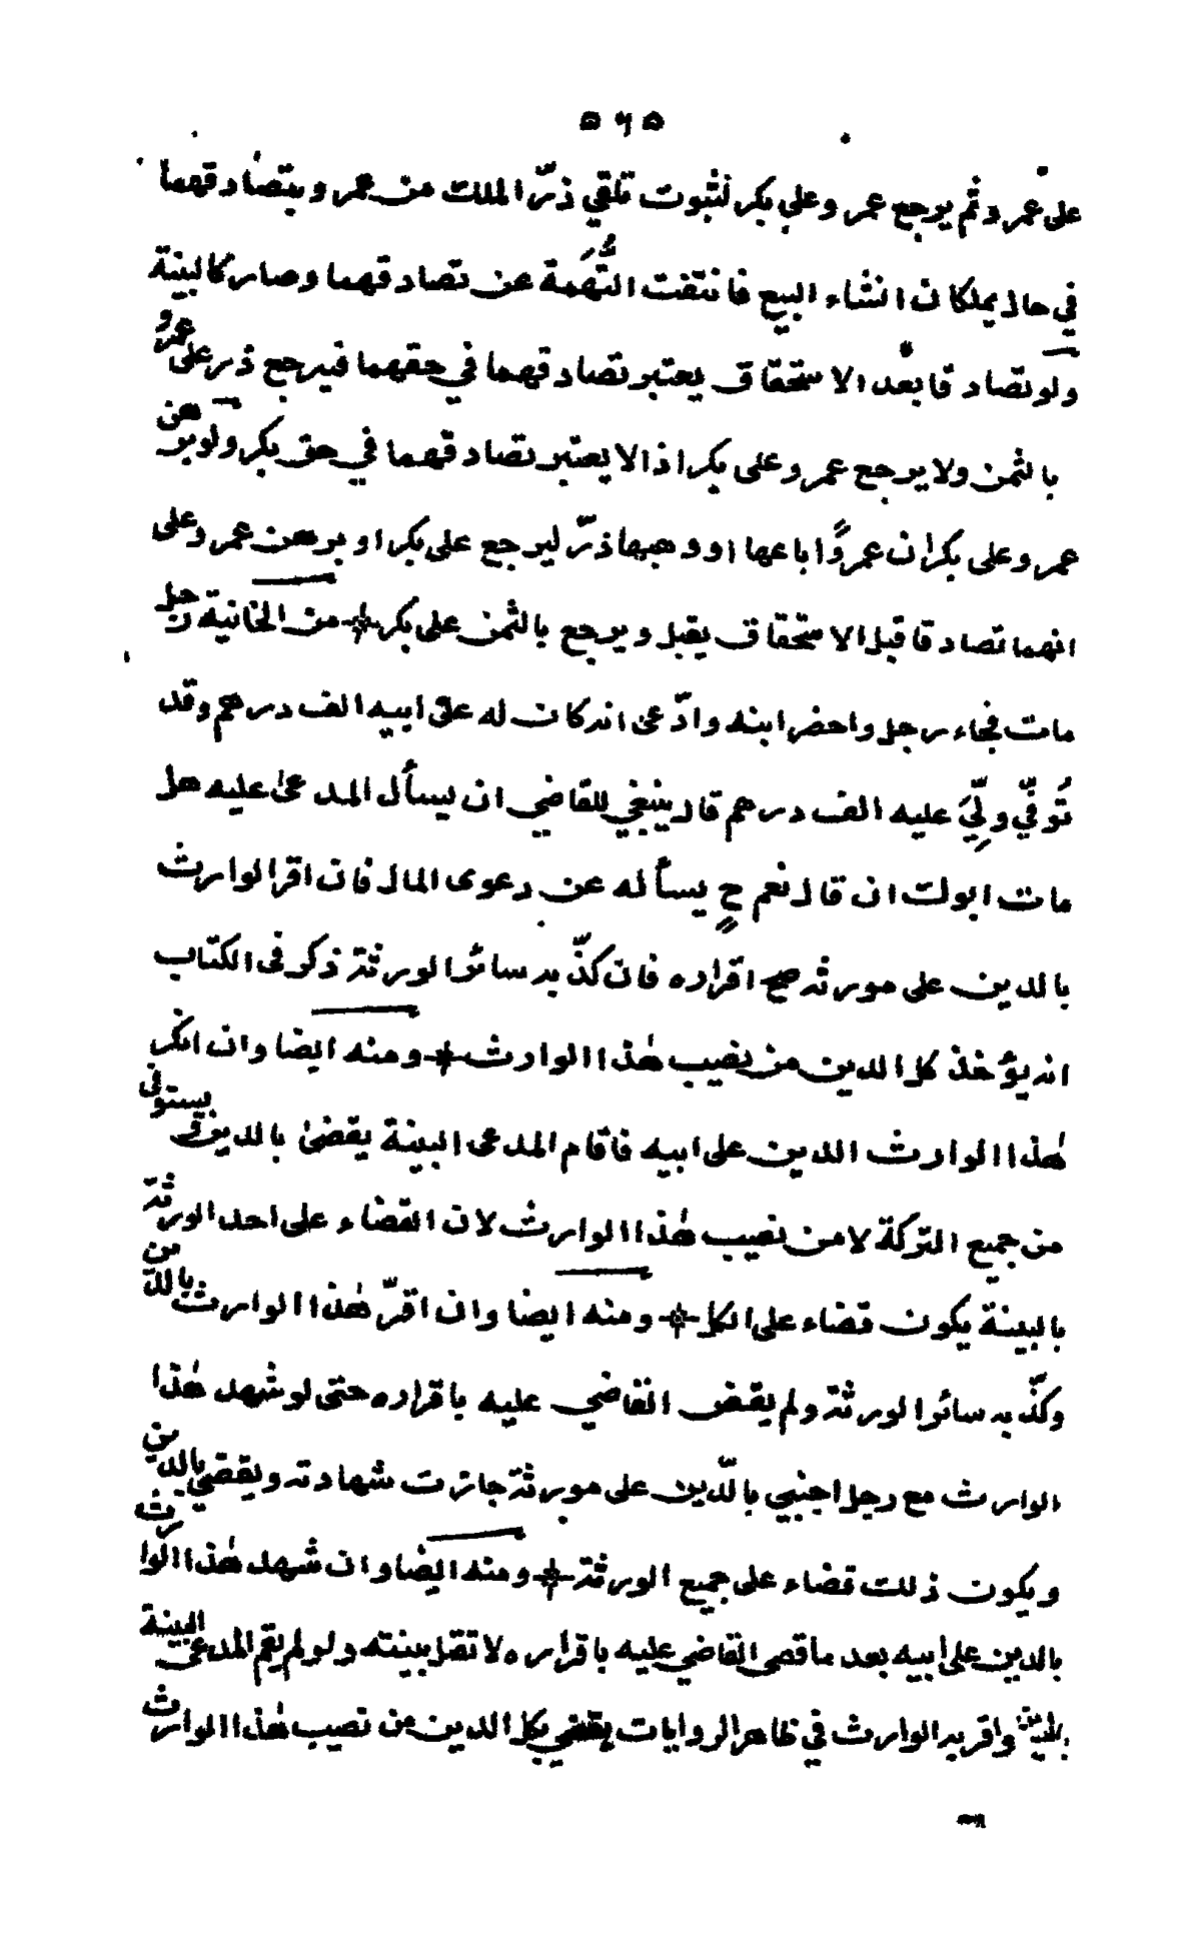 ٥٦٥
على عمرو ثم يرجع عمرو على بكر لثبوت تلقي ذرّ الملك من عمرو وبتصادقهما
في حال يملكان انشاء البيع فانتفت التُّهَمة عن تصادقهما وصار كالبينة
ولو تصادقا بعد الاستحقاق يعتبر تصادقهما في حقهما فيرجع ذر على عمرو
بالثمن ولا يرجع عمرو على بكر اذ لا يعتبر تصادقهما في حق بكر ولو برهن
عمرو على بكر ان عمروًا باعها او وهبها ذرّ ليرجع على بكر او برهن عمرو على
انهما تصادقا قبل الاستحقاق يقبل ويرجع بالثمن على بكر من الخانية رجل
مات فجاء رجل واحضر ابنه وادّعى انه كان له على ابيه الف درهم وقد
تُوفّي ولِّيَ عليه الف درهم قال ينبغي للقاضي ان يسأل المدعى عليه هل
مات ابوك ان قال نعم حٍ يسأله عن دعوى المال فان اقر الوارث
بالدين على مورثه صح اقراره فان كذّبه سائر الورثة ذكر في الكتاب
انه يؤخذ كل الدين من نصيب هٰذا الوارث ومنه ايضا وان انكر
هٰذا الوارث الدين على ابيه فاقام المدعى البينة يقضىٰ بالدين ويستوفى
من جميع التركة لا من نصيب هٰذا الوارث لان القضاء على احد الورثة
بالبينة يكون قضاء على الكل ومنه ايضا وان اقرّ هٰذا الوارث بالدين
وكذّبه سائر الورثة ولم يقض القاضي عليه باقراره حتى لو شهد هٰذا
الوارث مع رجل اجنبي بالدّين على مورثه جازت شهادته ويقضي بالدين
ويكون ذلك قضاء على جميع الورثة ومنه ايضا وان شهد هٰذا الوارث
بالدين على ابيه بعد ما قضى القاضي عليه باقراره لا تقبل بينته ولو لم يقم المدعى البينة
واقر به الوارث في ظاهر الروايات يقضي بكل الدين من نصيب هٰذا الوارث